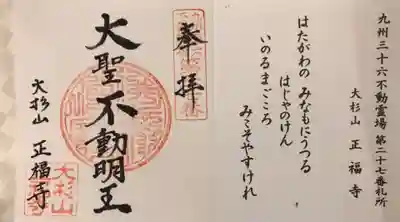 九州三十六不動霊場 第二十七番札所
大杉山 正福寺
はたがわの みなもにうつる
はじゃのけん
いのるまごころ
みこそやすけれ
奉拝
大聖不動明王
大杉山 正福寺
大杉山